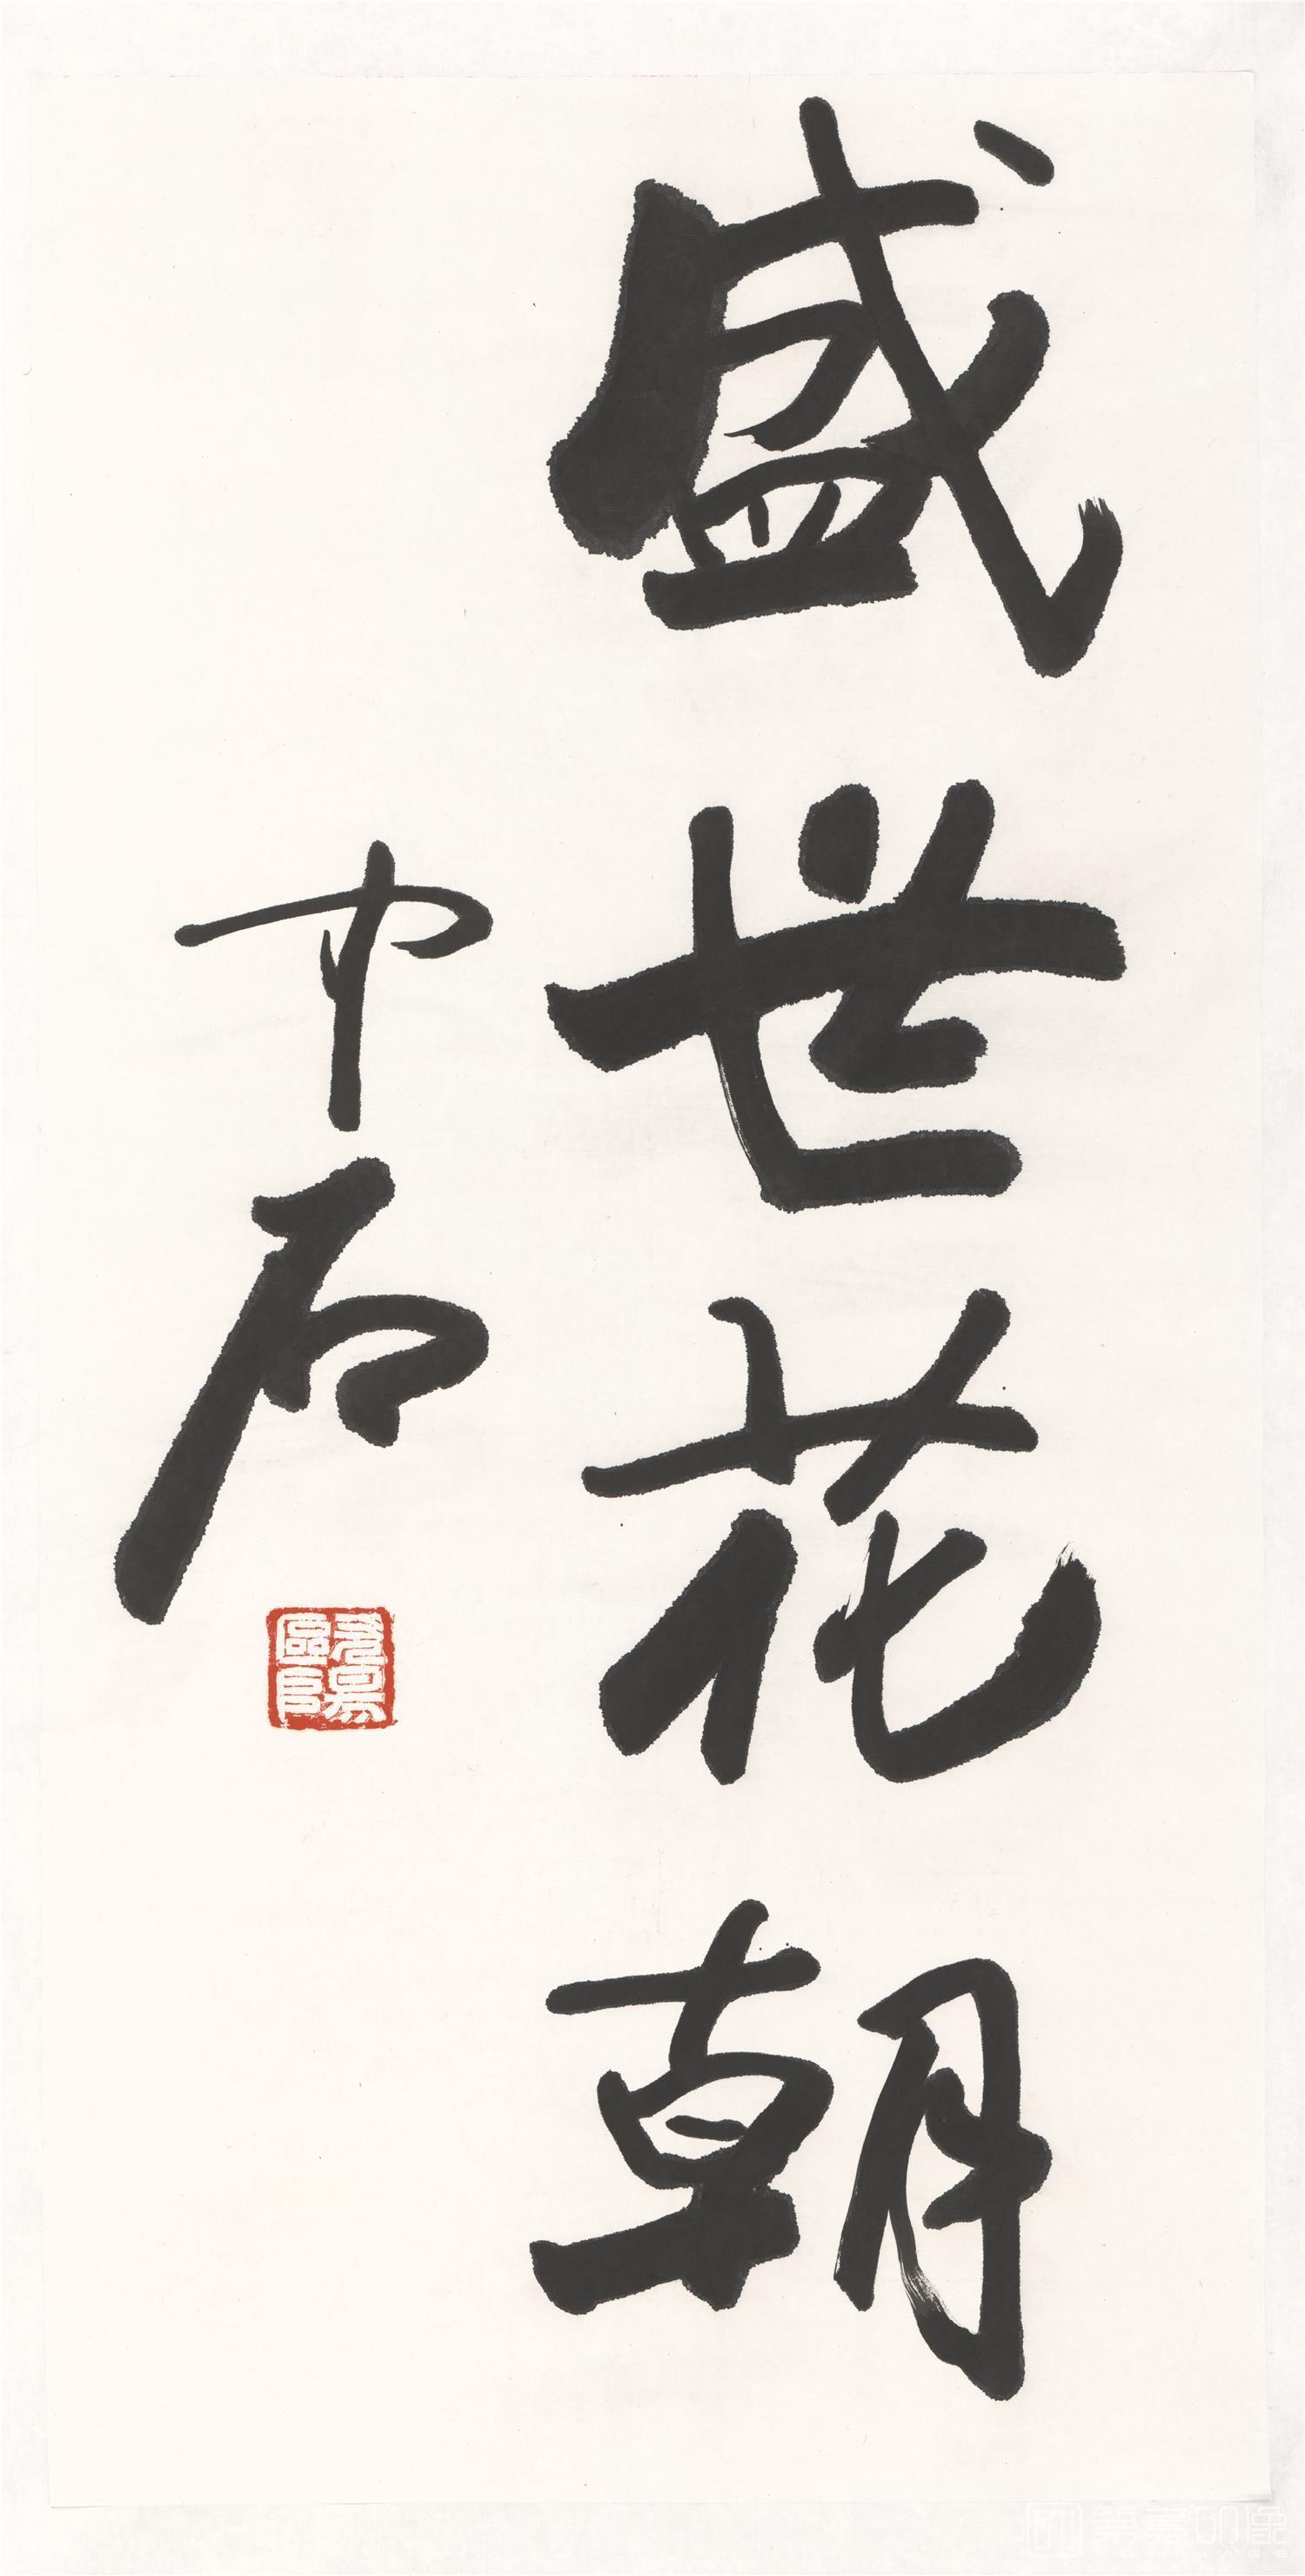 盛世花朝
中石